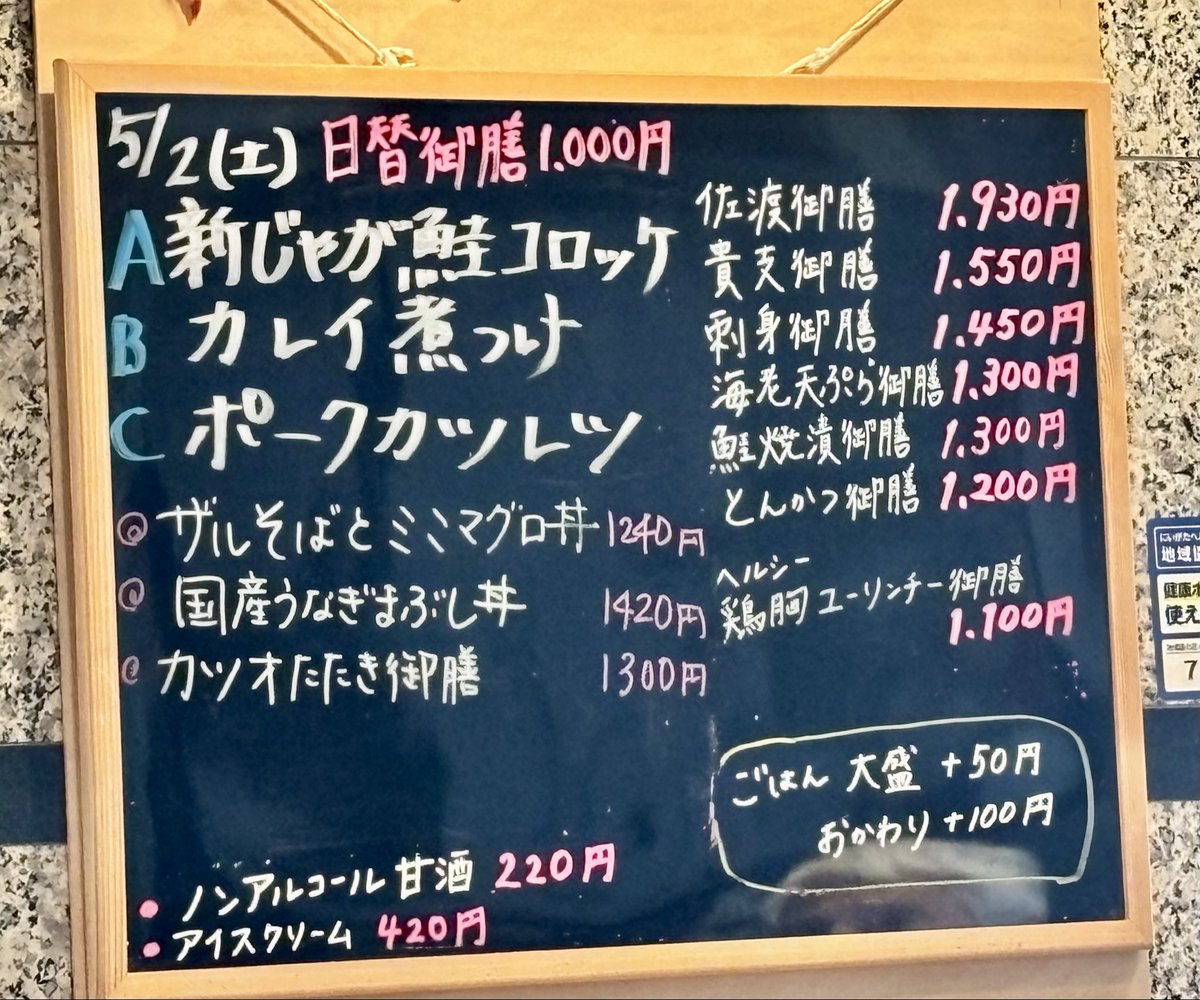 5/2(土) 日替御膳 1.000円
A 新じゃが鮭コロッケ
B カレイ煮つけ
C ポークカツレツ
ザルそばとミニマグロ丼 1240円
国産うなぎまぶし丼 1420円
カツオたたき御膳 1300円
ノンアルコール甘酒 220円
アイスクリーム 420円
佐渡御膳 1.930円
貴支御膳 1.550円
刺身御膳 1.450円
海老天ぷら御膳 1.300円
鮭焼漬御膳 1.300円
とんかつ御膳 1.200円
ヘルシー
鶏胸ユーリンチー御膳
1.100円
ごはん 大盛 +50円
おかわり +100円
にいがたヘ
地域
健康
使え
7